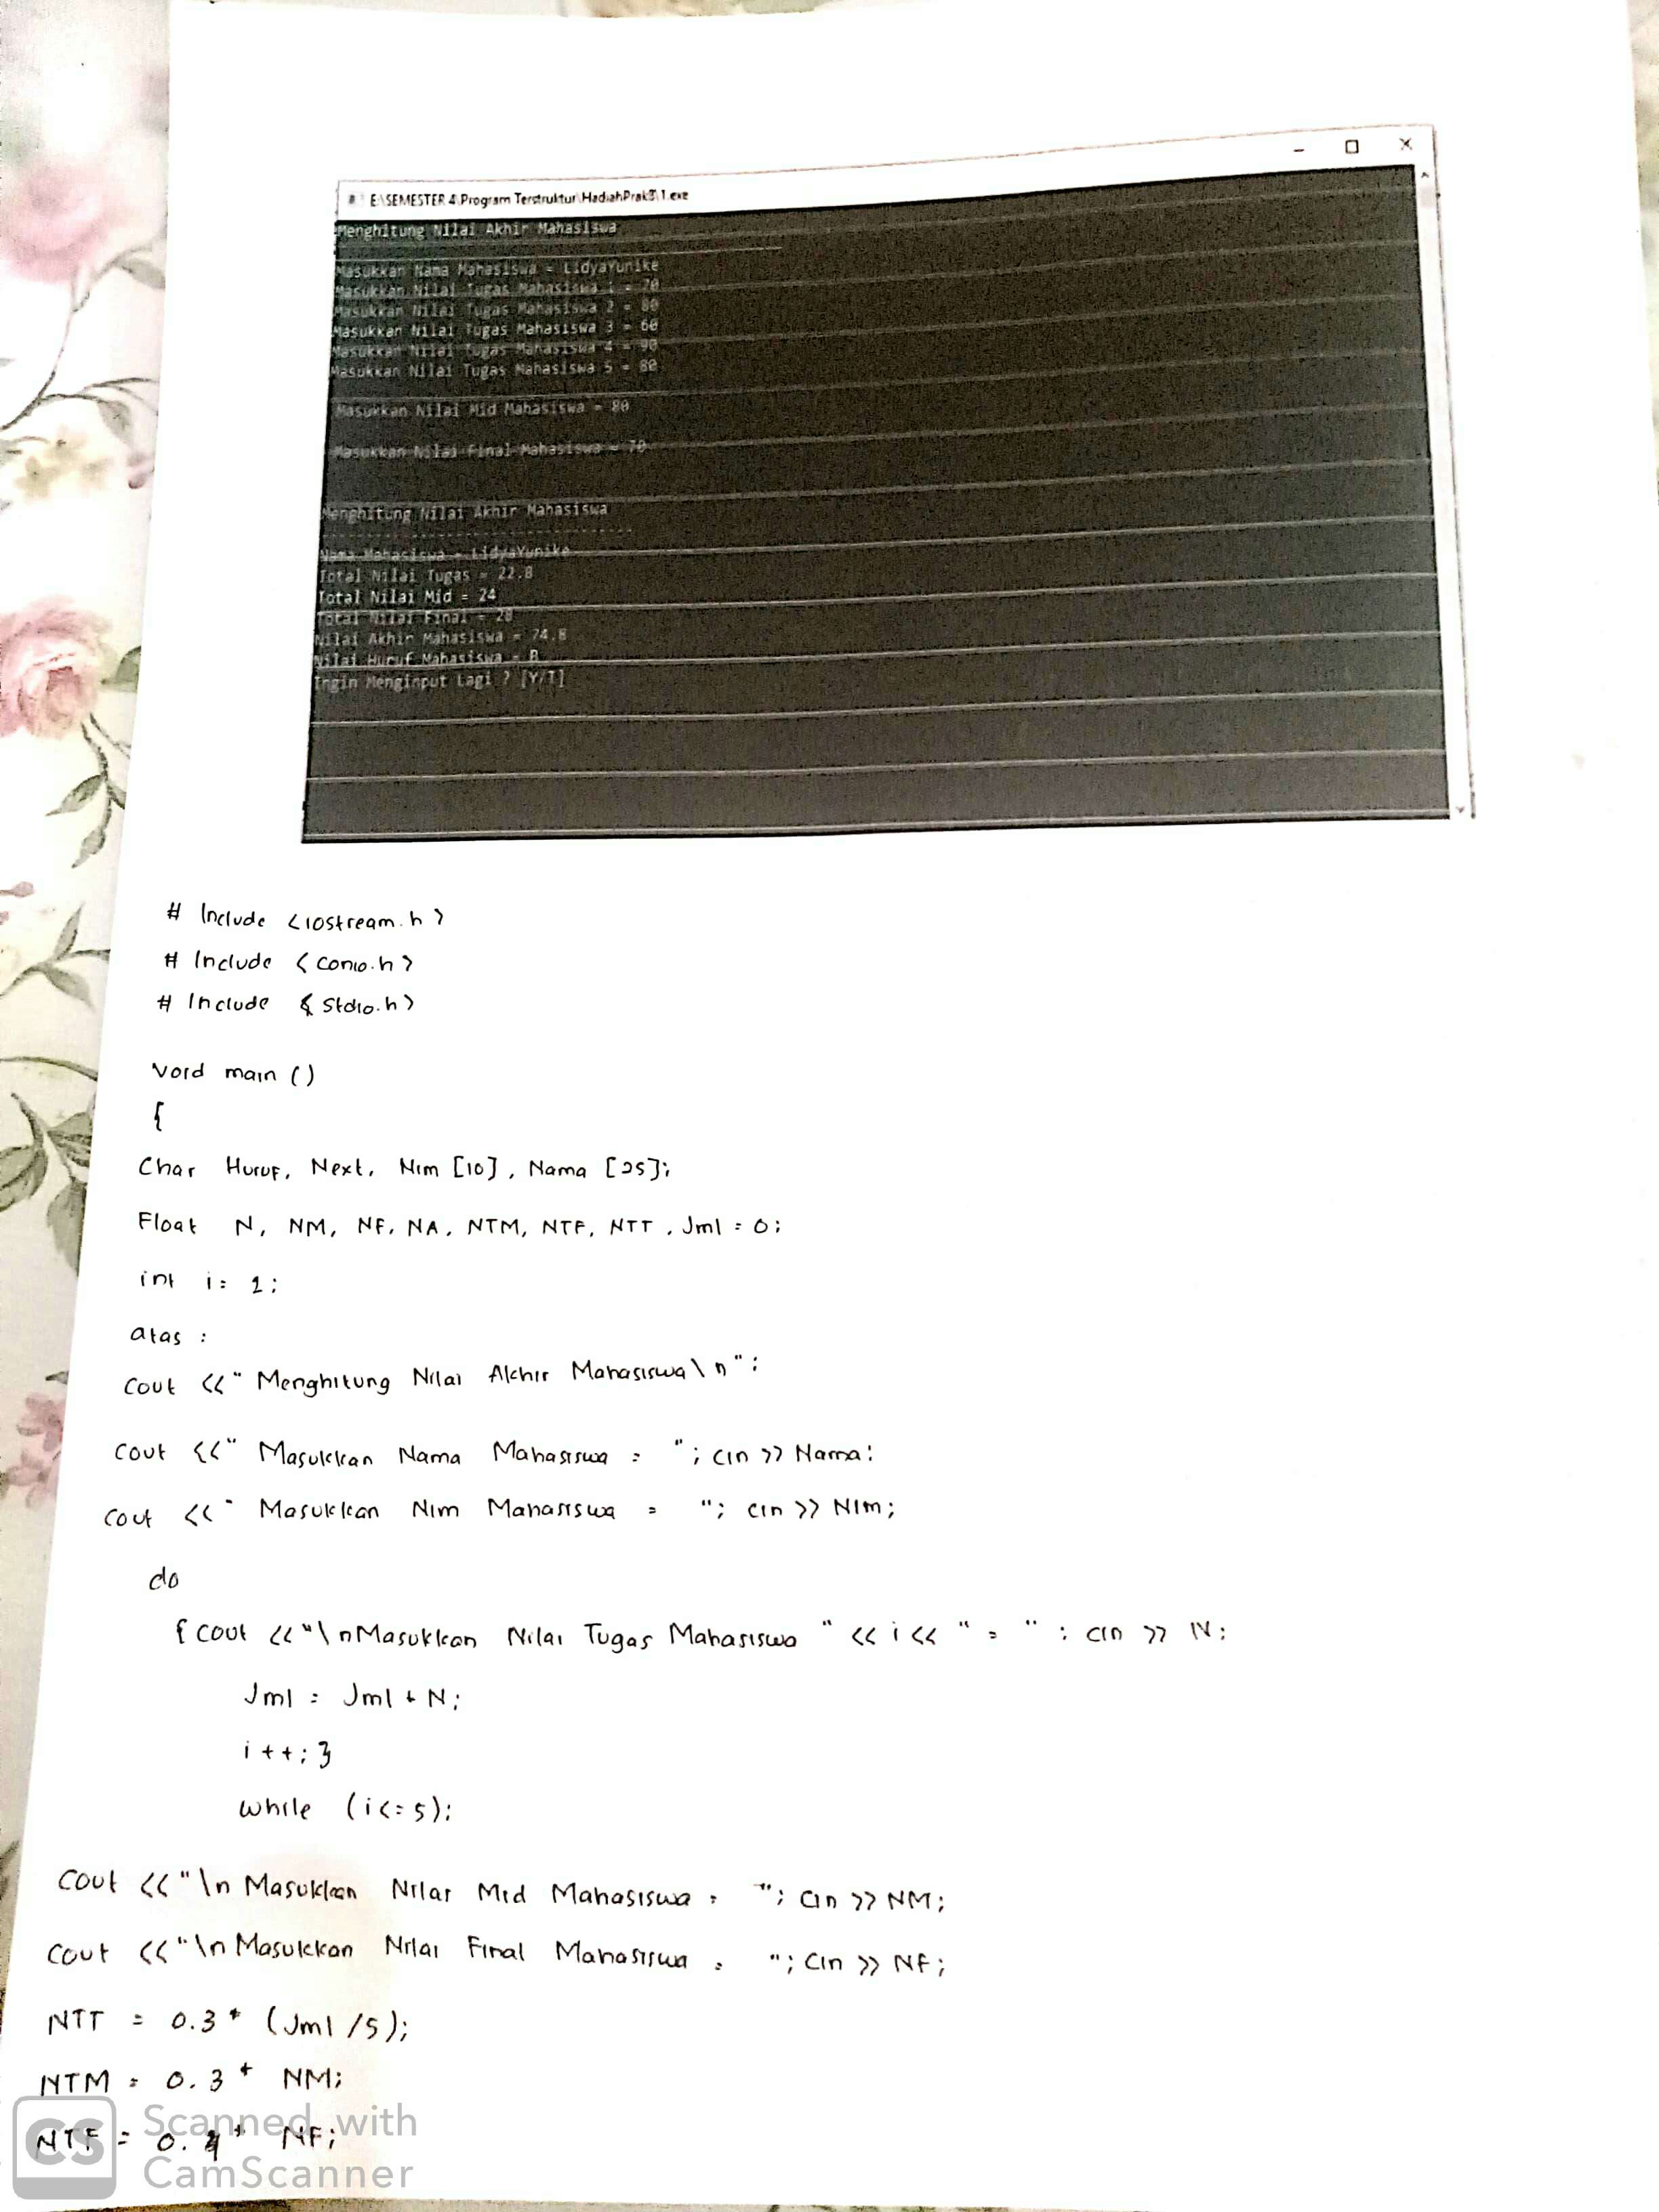 E:\SEMESTER 4\Program Terstruktur\HadiahPrak3\1.exe
Menghitung Nilai Akhir Mahasiswa
Masukkan Nama Mahasiswa = LidyaYunike
Masukkan Nilai Tugas Mahasiswa 1 = 70
Masukkan Nilai Tugas Mahasiswa 2 = 80
Masukkan Nilai Tugas Mahasiswa 3 = 60
Masukkan Nilai Tugas Mahasiswa 4 = 90
Masukkan Nilai Tugas Mahasiswa 5 = 80
Masukkan Nilai Mid Mahasiswa = 80
Masukkan Nilai Final Mahasiswa = 70
Menghitung Nilai Akhir Mahasiswa
--------------------------------
Nama Mahasiswa = LidyaYunike
Total Nilai Tugas = 22.8
Total Nilai Mid = 24
Total Nilai Final = 28
Nilai Akhir Mahasiswa = 74.8
Nilai Huruf Mahasiswa = B
Ingin Menginput Lagi ? [Y/T]
# Include <iostream.h>
# Include <conio.h>
# Include <stdio.h>
Void main ()
{
Char Huruf, Next, Nim [10], Nama [25];
Float N, NM, NF, NA, NTM, NTF, NTT, Jml = 0;
int i = 1;
atas :
Cout <<" Menghitung Nilai Akhir Mahasiswa\n";
Cout <<" Masukkan Nama Mahasiswa = "; cin >> Nama;
Cout <<" Masukkan Nim Mahasiswa = "; cin >> Nim;
do
{ Cout <<"\nMasukkan Nilai Tugas Mahasiswa " << i << " = " ; cin >> N;
Jml = Jml + N;
i ++; }
while (i<=5);
Cout <<"\n Masukkan Nilai Mid Mahasiswa = "; Cin >> NM;
Cout <<"\n Masukkan Nilai Final Mahasiswa = "; Cin >> NF;
NTT = 0.3 * (Jml /5);
NTM = 0.3 * NM;
NTF = 0.4 * NF;
CS Scanned with
CamScanner